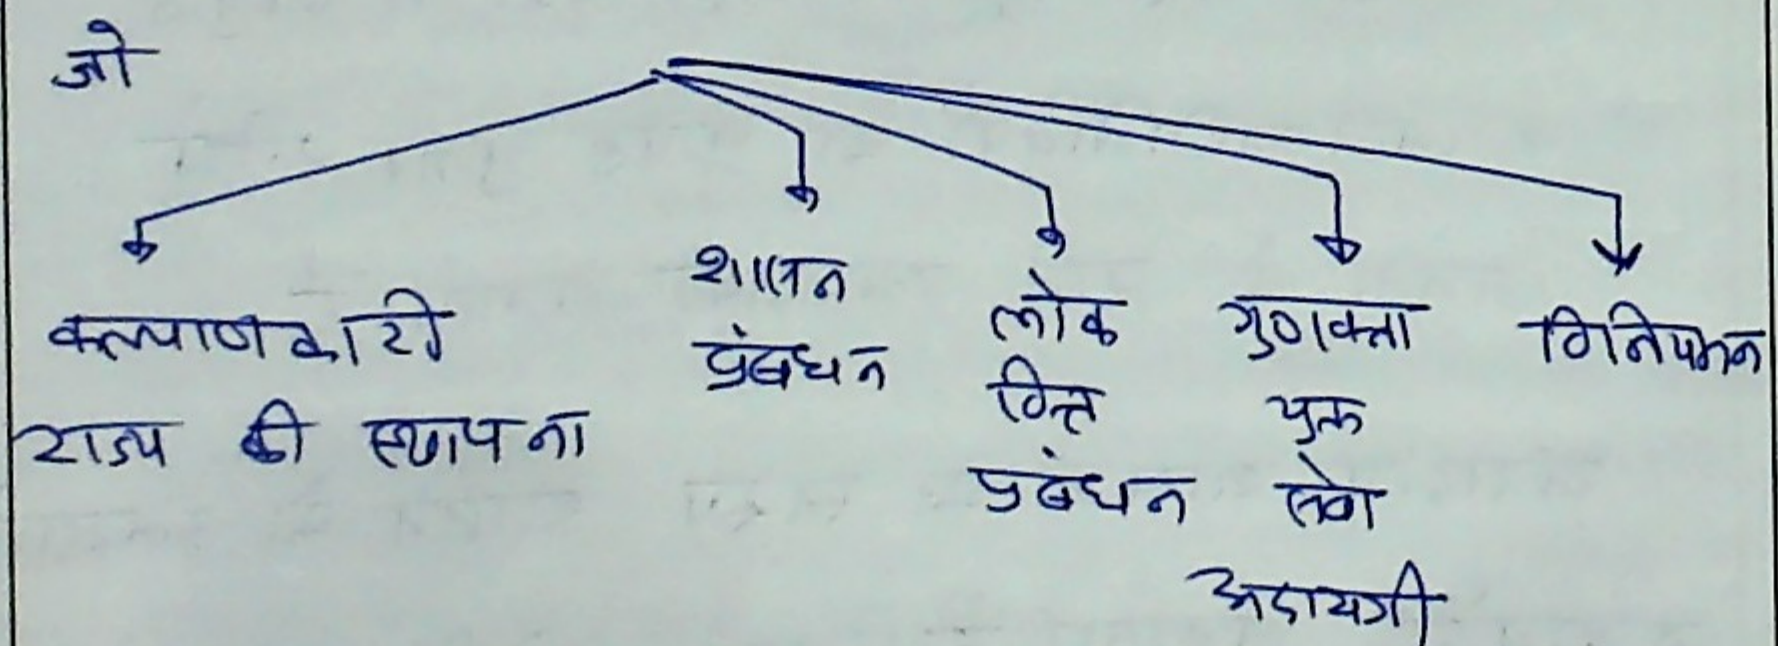 जो
कल्याणकारी
राज्य की स्थापना
शासन
प्रंबधन
लोक
वित्त
प्रबंधन
गुणवत्ता
युक्त
सेवा
अदायगी
विनियमन